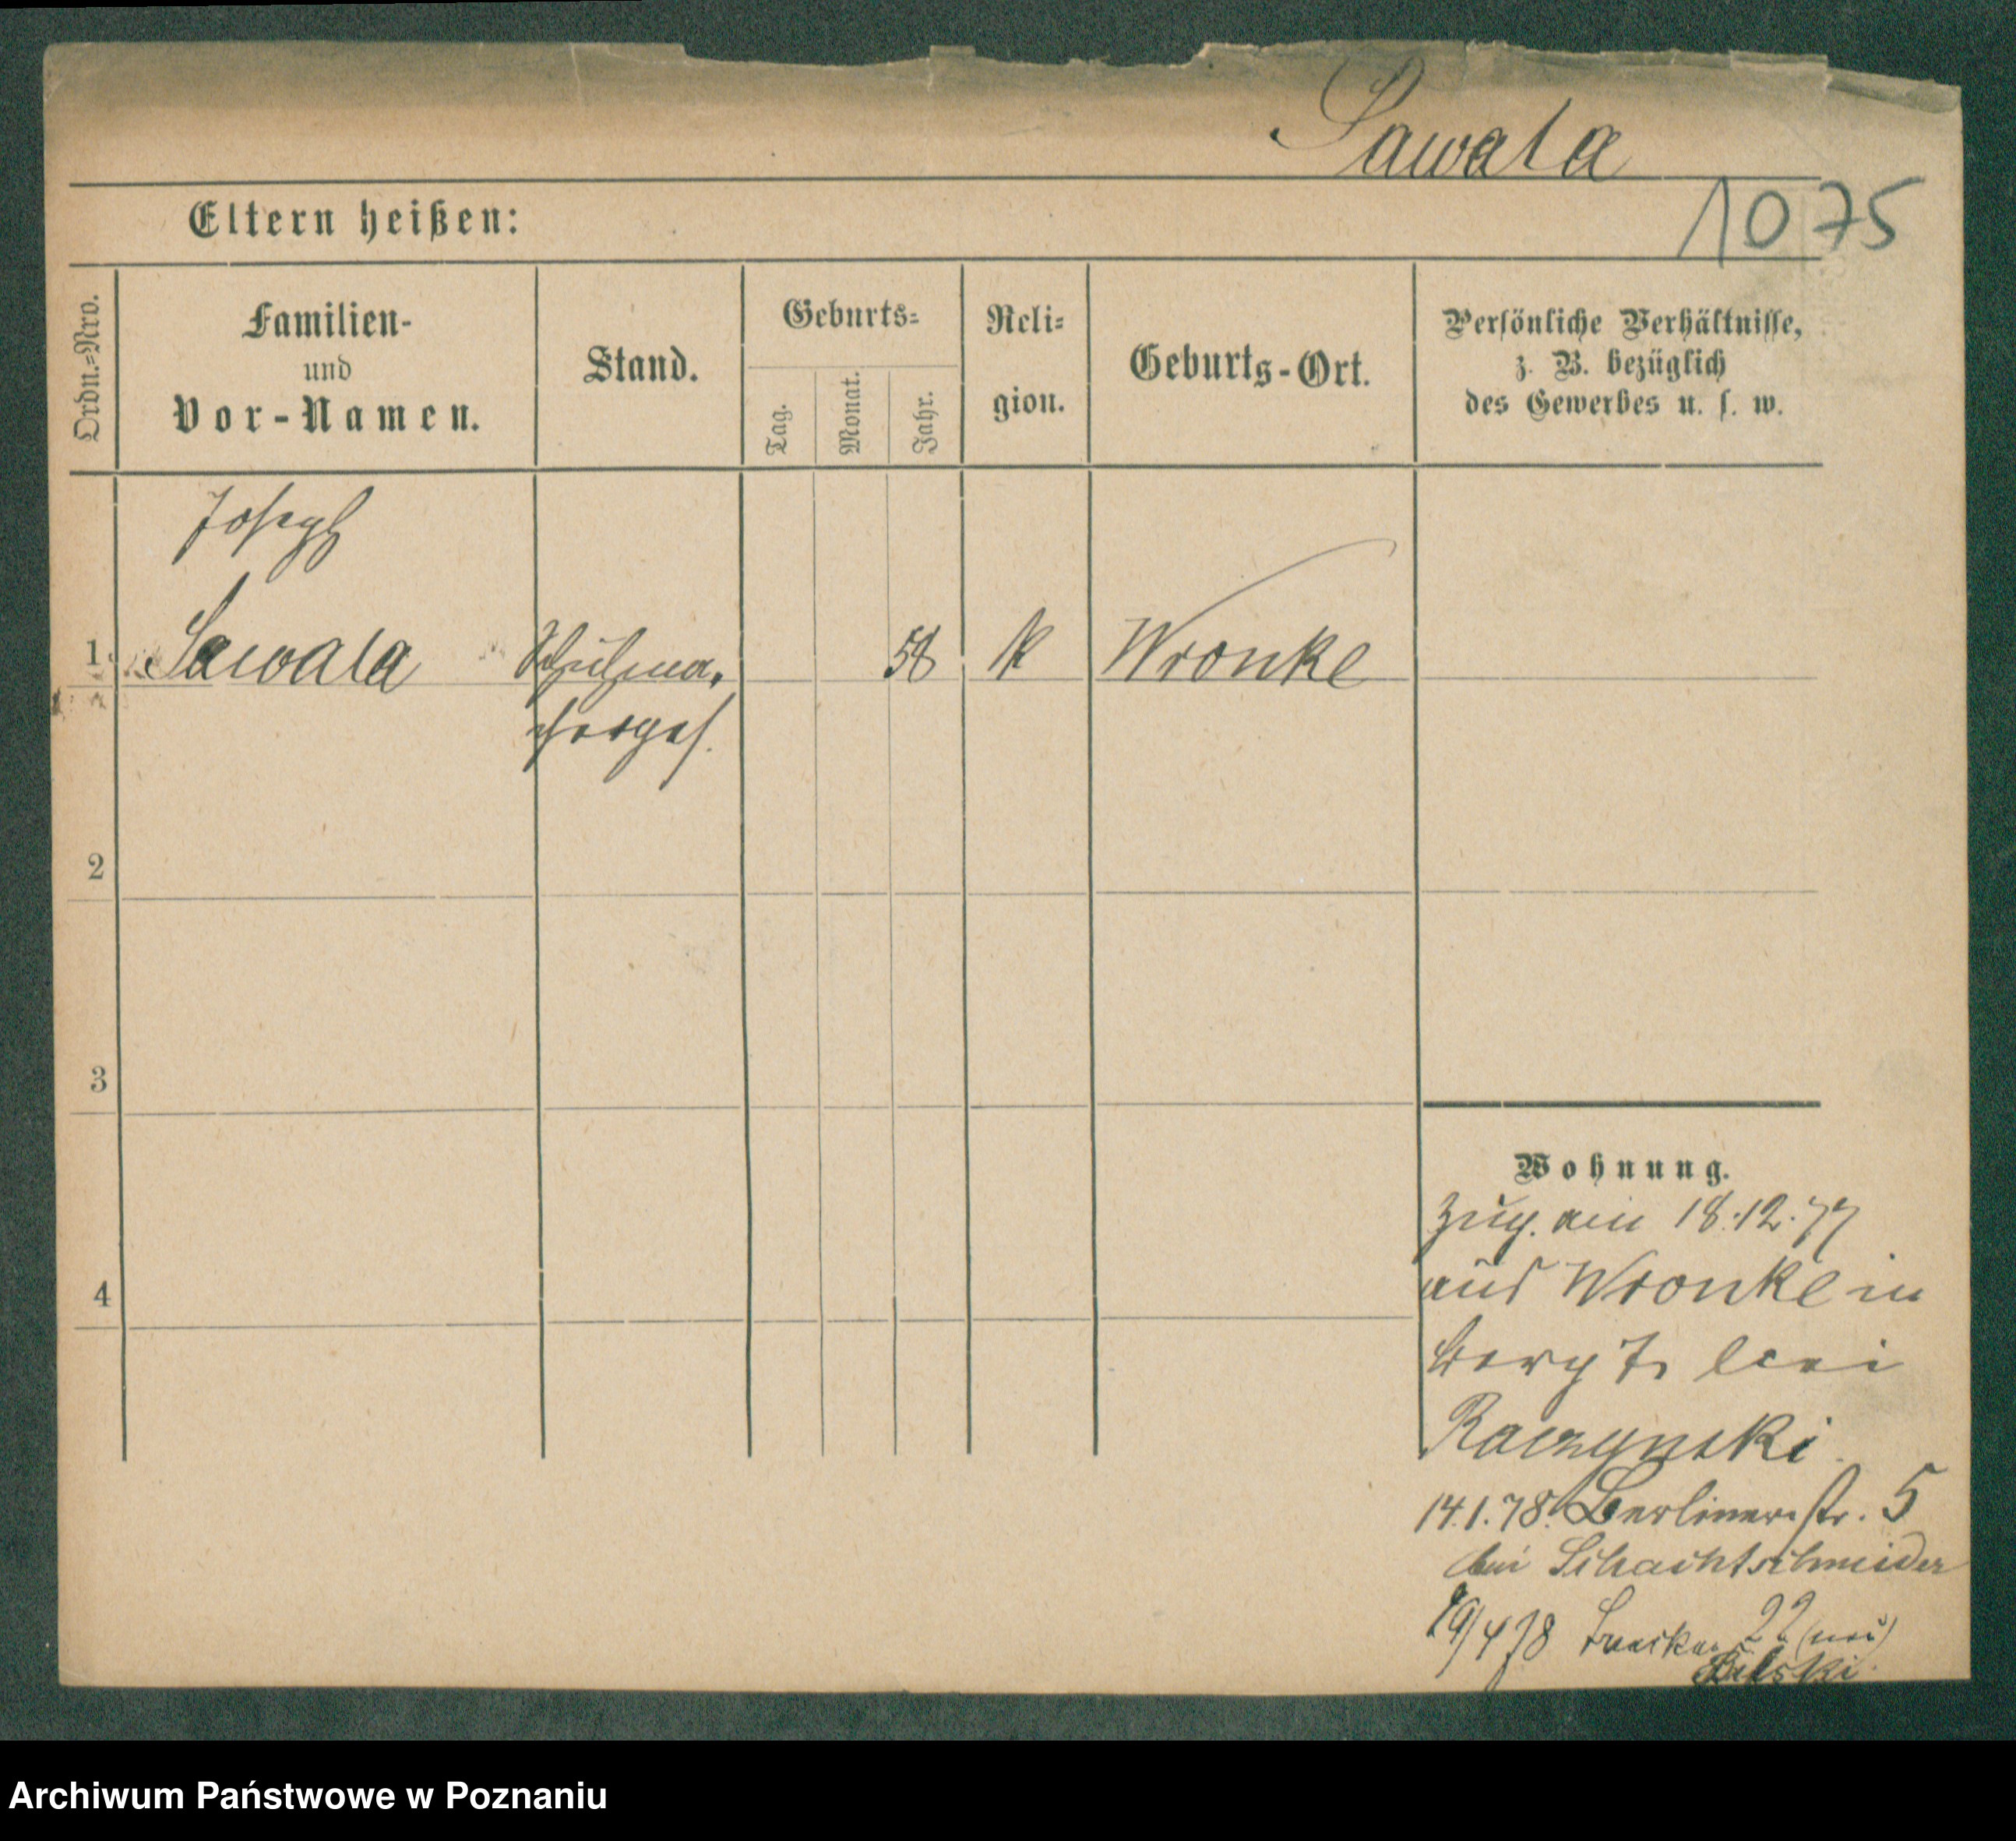 Sawala
1075
Eltern heißen:
Ordn.=Nro.
Familien-
und
Vor-Namen.
Stand.
Geburts=
Tag.
Monat.
Jahr.
Reli=
gion.
Geburts-Ort.
Persönliche Verhältnisse,
z. B. bezüglich
des Gewerbes u. s. w.
Joseph
1 Sawala Schuhma- 58 k Wronke
chergés.
2
3
4
Wohnung.
Zug. am 18.12.77
aus Wronke in
Berg 7 bei
Raczynski
14.1.78. Berliner str. 5
bei Schachtschneider
19/4 78 22 (bei)
Bilski
Archiwum Państwowe w Poznaniu